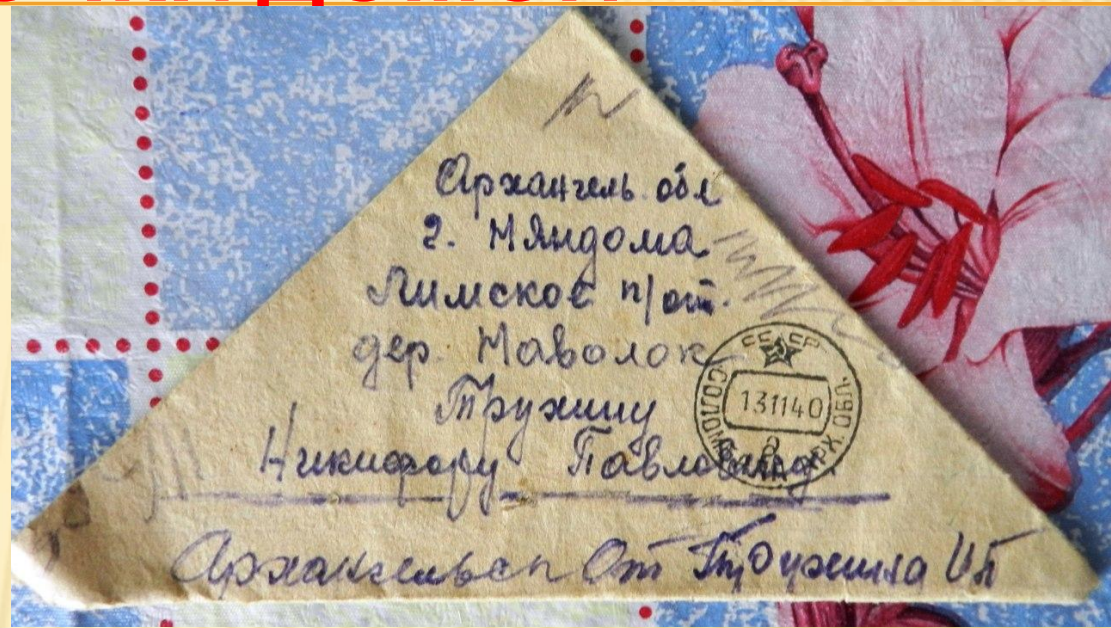 Архангель. обл
г. Няндома
Лимское п/от.
дер. Наволок
Тружину
Никифору Павловичу
СССР
131140
АРХ. ОБЛ.
Архангельск От Тружина ИП